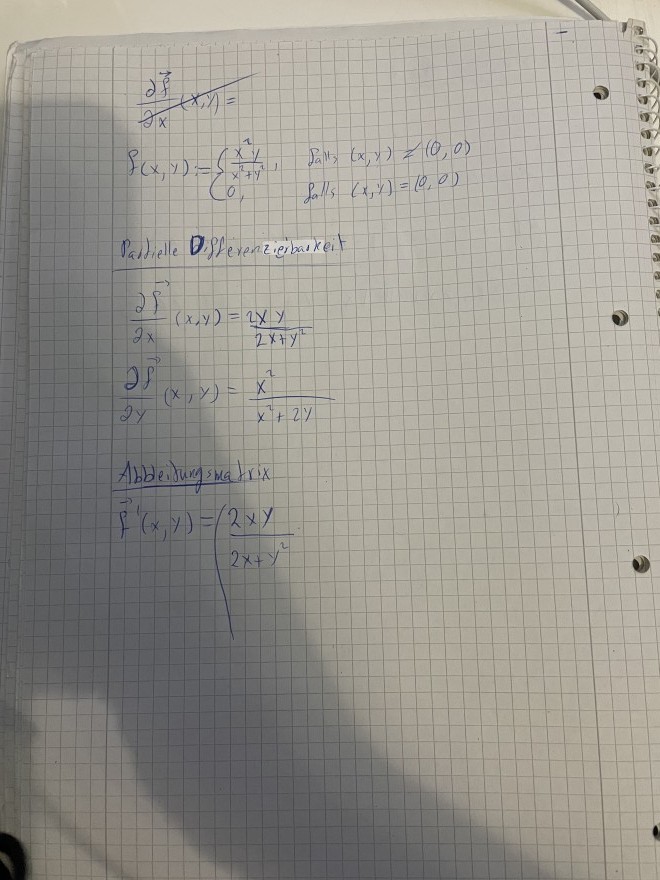 ∂f⃗/∂x (x,y) =
f(x,y) := { x²y/(x²+y²), falls (x,y) ≠ (0,0)
0, falls (x,y) = (0,0)
Partielle Differenzierbarkeit
∂f⃗/∂x (x,y) = 2xy/(2x+y²)
∂f⃗/∂y (x,y) = x²/(x²+2y)
Ableitungsmatrix
f⃗'(x,y) = ( 2xy/(2x+y²)